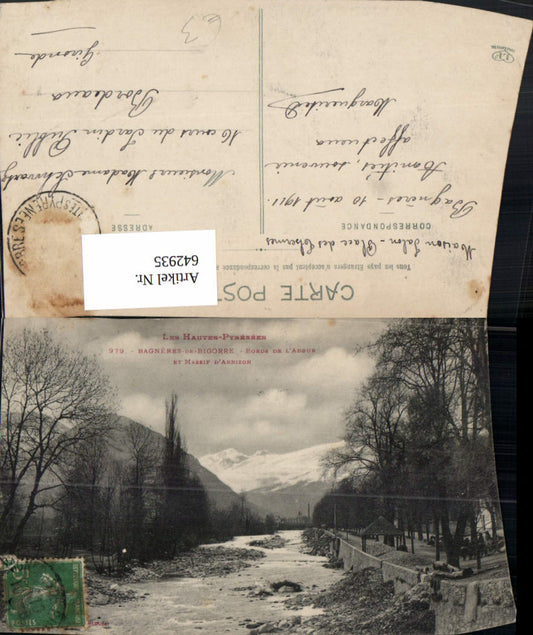 CARTE POST
Tous les pays étrangers n'acceptent pas la correspondance a
Maison Salon - Place des Thermes
CORRESPONDANCE
ADRESSE
Bagnères - 10 août 1911.
Amitiés, souvenir
affectueux
Marguerite
Monsieur & Madame
16 cours du Jardin Public
Bordeaux
Gironde
63
Artikel Nr.
642935
LES HAUTES-PYRÉNÉES
979 - BAGNÈRES-DE-BIGORRE - BORDS DE L'ADOUR
ET MASSIF D'ARBIZON
POSTES